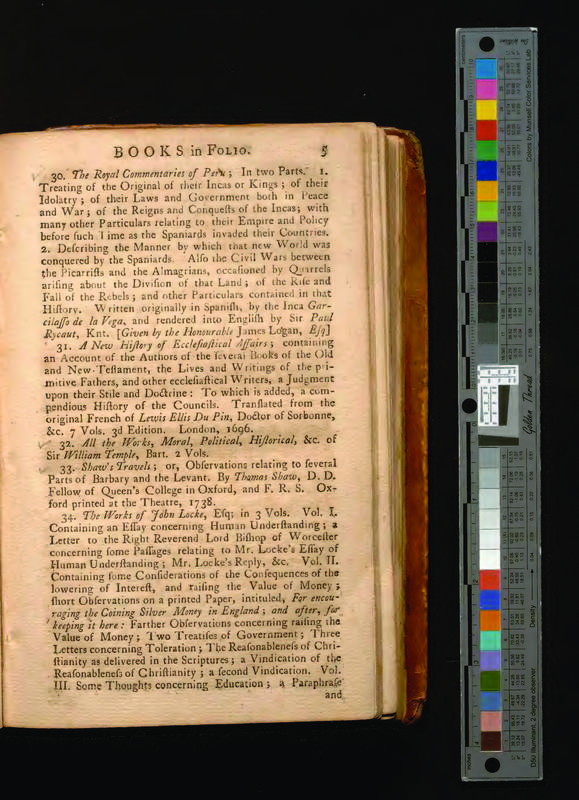 BOOKS in FOLIO. 5
30. The Royal Commentaries of Peru; In two Parts. 1.
Treating of the Original of their Incas or Kings; of their
Idolatry; of their Laws and Government both in Peace
and War; of the Reigns and Conqueſts of the Incas; with
many other Particulars relating to their Empire and Policy
before ſuch Time as the Spaniards invaded their Countries.
2. Deſcribing the Manner by which that new World was
conquered by the Spaniards. Alſo the Civil Wars between
the Picarriſts and the Almagrians, occaſioned by Quarrels
ariſing about the Diviſion of that Land; of the Riſe and
Fall of the Rebels; and other Particulars contained in that
Hiſtory. Written originally in Spaniſh, by the Inca Gar-
cilaſſo de la Vega, and rendered into Engliſh by Sir Paul
Rycaut, Knt. [Given by the Honourable James Logan, Eſq]
31. A New Hiſtory of Eccleſiaſtical Affairs; containing
an Account of the Authors of the ſeveral Books of the Old
and New-Teſtament, the Lives and Writings of the pri-
mitive Fathers, and other eccleſiaſtical Writers, a Judgment
upon their Stile and Doctrine: To which is added, a com-
pendious Hiſtory of the Councils. Tranſlated from the
original French of Lewis Ellis Du Pin, Doctor of Sorbonne,
&c. 7 Vols. 3d Edition. London, 1696.
32. All the Works, Moral, Political, Hiſtorical, &c. of
Sir William Temple, Bart. 2 Vols.
33. Shaw's Travels; or, Obſervations relating to ſeveral
Parts of Barbary and the Levant. By Thomas Shaw, D. D.
Fellow of Queen's College in Oxford, and F. R. S. Ox-
ford printed at the Theatre, 1738.
34. The Works of John Locke, Eſq; in 3 Vols. Vol. I.
Containing an Eſſay concerning Human Underſtanding; a
Letter to the Right Reverend Lord Biſhop of Worceſter
concerning ſome Paſſages relating to Mr. Locke's Eſſay of
Human Underſtanding; Mr. Locke's Reply, &c. Vol. II.
Containing ſome Conſiderations of the Conſequences of the
lowering of Intereſt, and raiſing the Value of Money;
ſhort Obſervations on a printed Paper, intituled, For encou-
raging the Coining Silver Money in England; and after, for
keeping it here: Farther Obſervations concerning raiſing the
Value of Money; Two Treatiſes of Government; Three
Letters concerning Toleration; The Reaſonableneſs of Chri-
ſtianity as delivered in the Scriptures; a Vindication of the
Reaſonableneſs of Chriſtianity; a ſecond Vindication. Vol.
III. Some Thoughts concerning Education; a Paraphraſe
and
Colors by Munsell Color Services Lab
Golden Thread
Density
D50 Illuminant, 2 degree observer